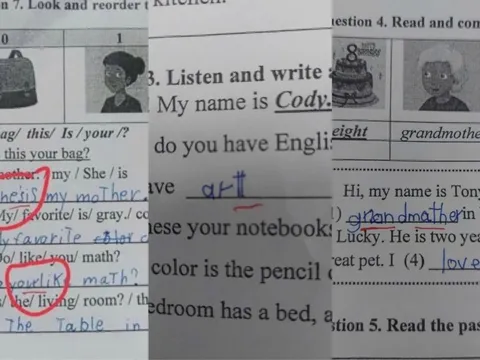 on 7. Look and reorder t
0 1
bag/ this/ Is / your /?
this your bag?
mother. / my / She / is
nesis my mother.
My/ favorite/ is/ gray./ co
y favorite color c
Do/ like/ you/ math?
yourlik math?
he/ living/ room? / th
The Table in
kitchen.
3. Listen and write a
My name is Cody.
do you have Engli
ave art
nese your notebook
color is the pencil c
edroom has a bed, a
estion 4. Read and com
eight grandmothe
Hi, my name is Tony
) grandmather in
Lucky. He is two yea
reat pet. I (4) love
stion 5. Read the pas